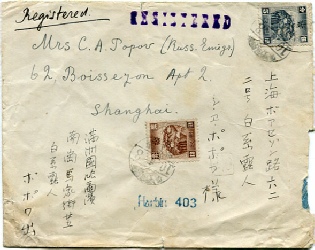 Registered.
REGISTERED
Mrs C. A. Popov (Russ. Emigr.)
62, Boissezon Apt 2.
Shanghai.
上海ボアセゾン路六二
二号 白系露人
シアポポワ様
満洲國哈爾濱
白系露人
ポポワ出
Harbin 403